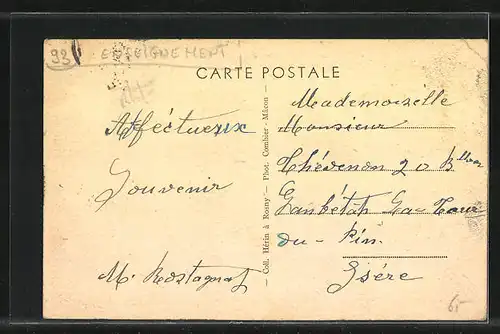 93
ENSEIGNEMENT
CARTE POSTALE
Afféctueux
Souvenir
M. Rostagnat
Coll. Hérin à Rosny — Phot. Combier - Mâcon
Mademoiselle
Monsieur
Thévenon 20 Bllvar
Gambétah La-Tour
du-Pin.
Isére